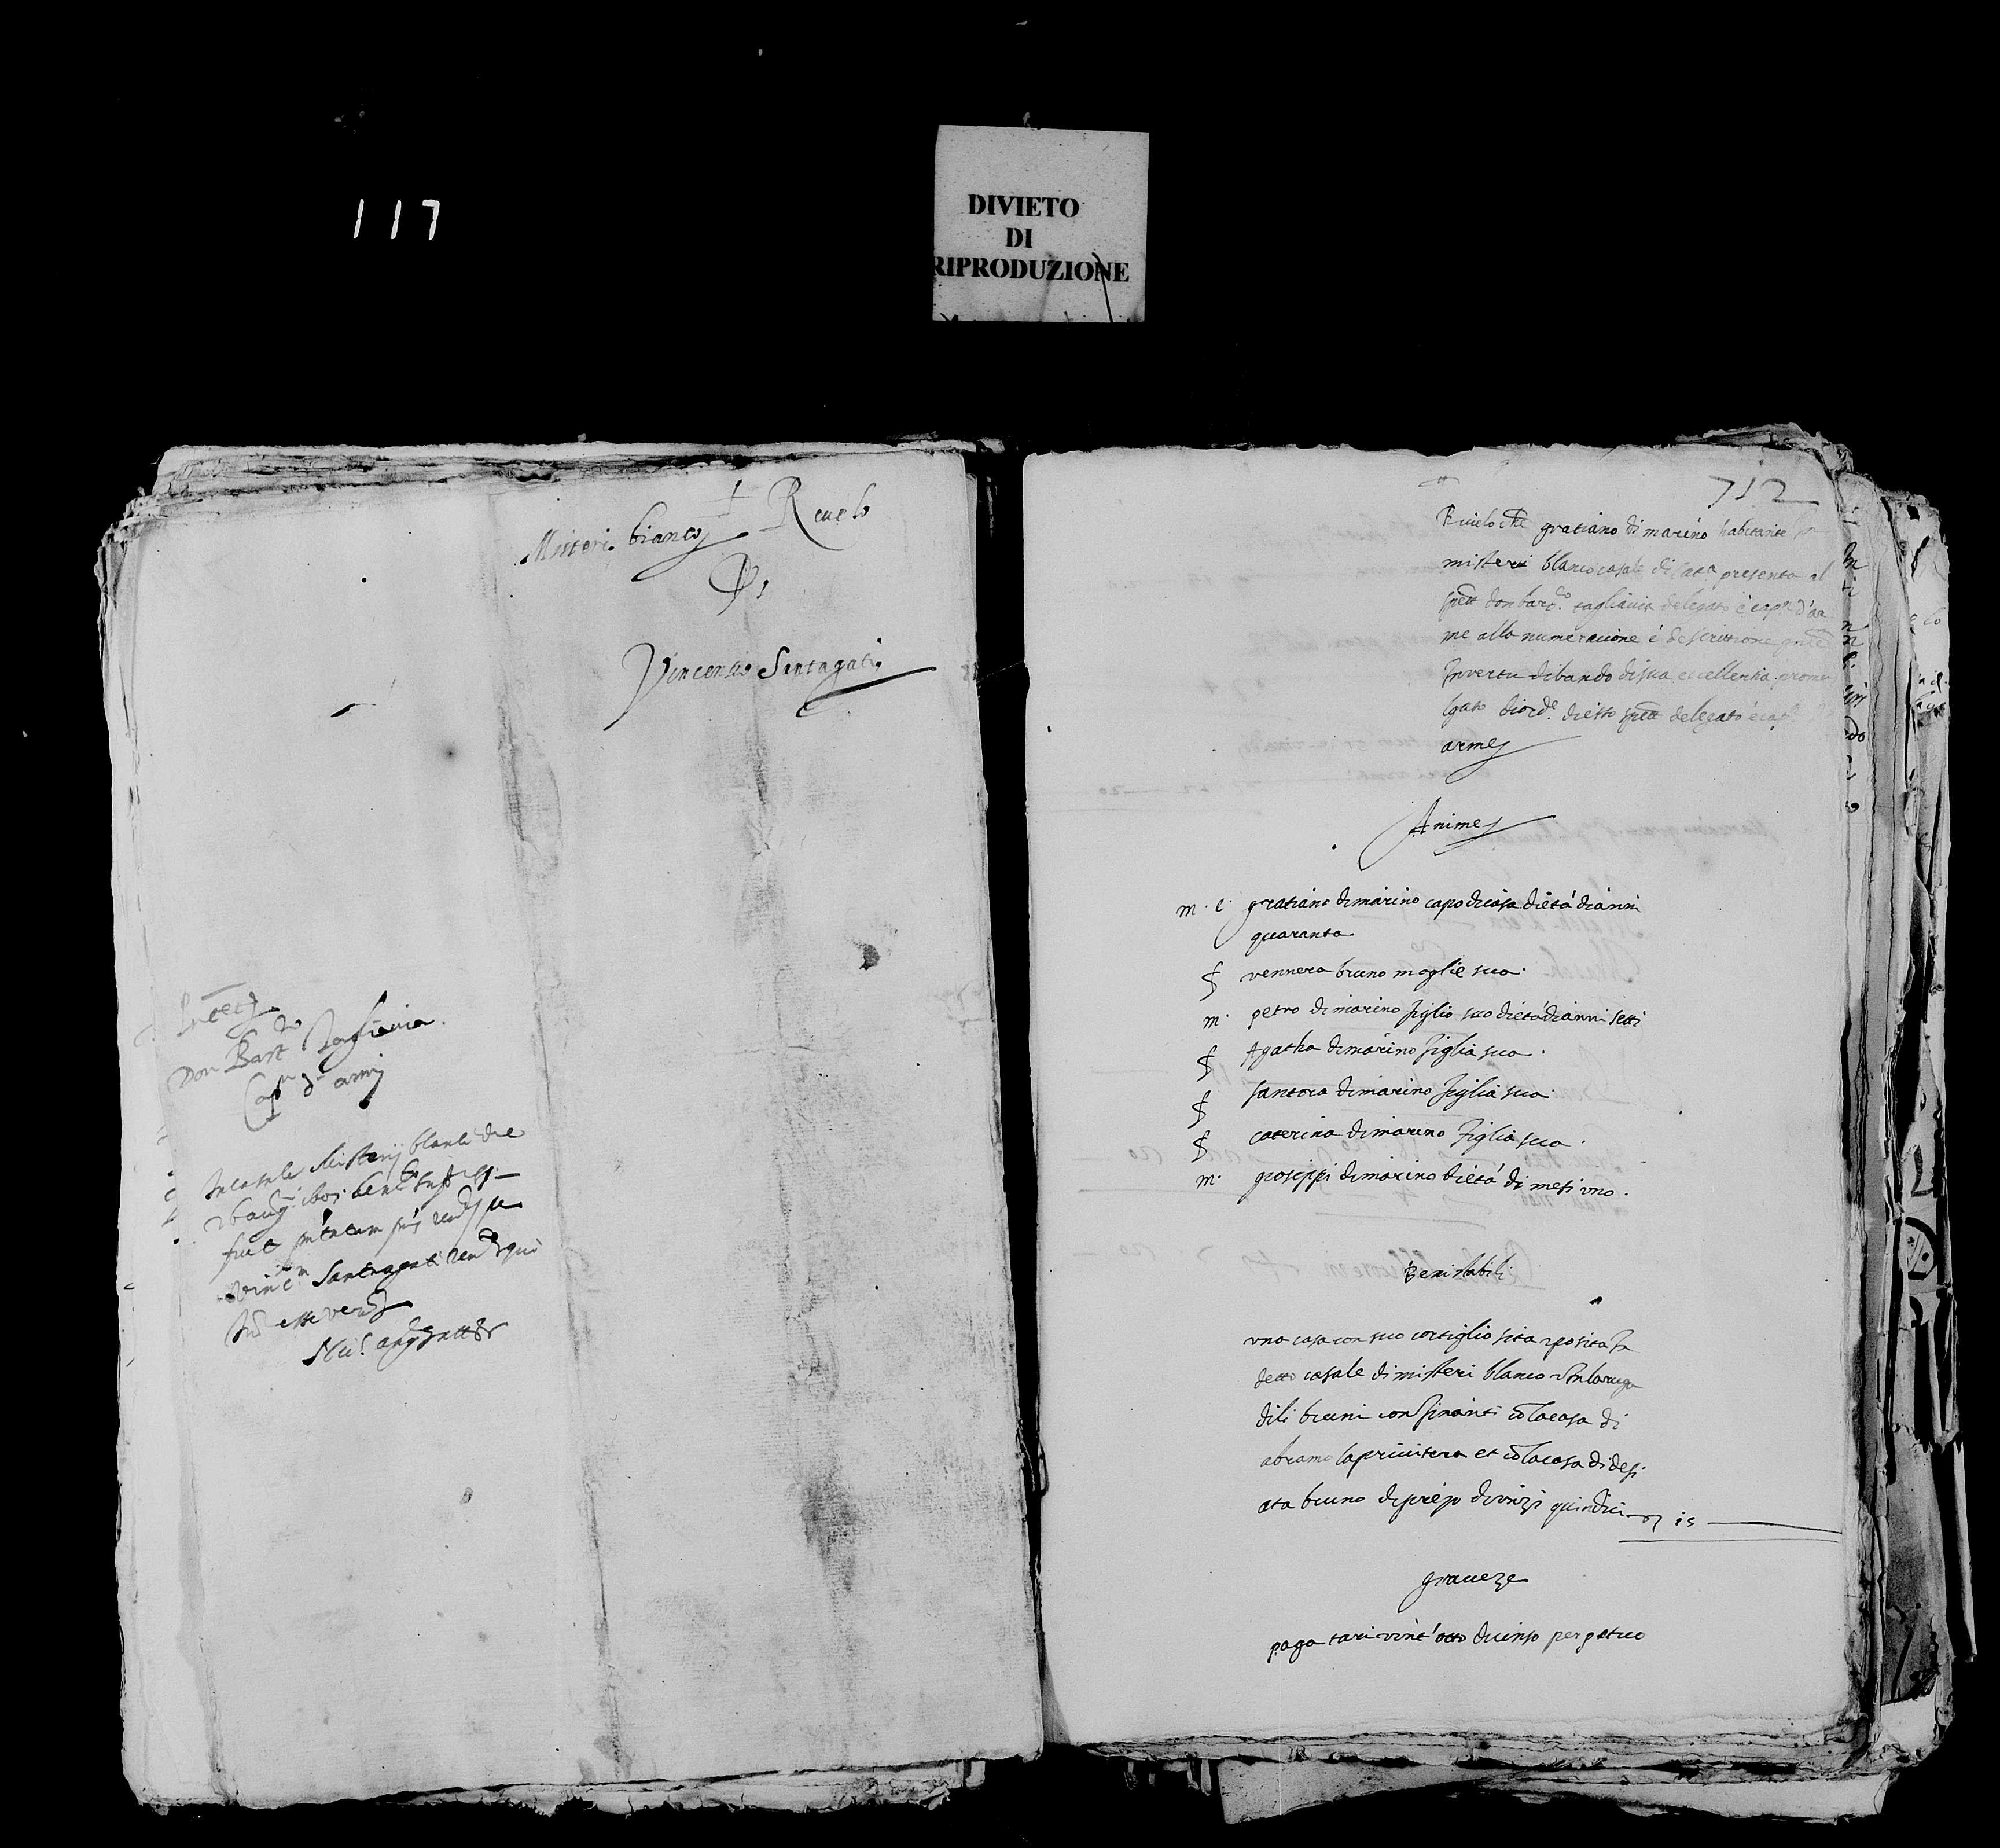 117
DIVIETO
DI
RIPRODUZIONE
Misteri bianco Revelo
Di
Vincenso Santagati
Don Bart.do Tagliavia
Cap.n d' armi
In casali Misterij blanci die
fuit
Vinc.m Santagati
esse
712
Rivelo che gratiano di marino habitante
misteri blanco casale di Cat.a presenta al
spett. don bart.do tagliavia delegato è cap.n d'ar
me alla numeracione é descrittione
In vertu di bando di sua eccellentia promu
lgato di ord.e di esso spett. delegato è cap.
arme
Anime
m. c. gratiano di marino capo di casa di età di anni
quaranta
f vennera bruno moglie sua.
m. petro di marino figlio suo di età di anni setti
f Agatha di marino figlia sua.
f santora di marino figlia sua.
f caterina di marino figlia sua.
m. gioseppi di marino di età di mesi uno.
Beni stabili
una casa con suo cortiglio sita e posita In
detto casale di misteri blanco In la ruga
di li bruni confinanti cō la casa di
abramo la privitera et cō la casa di desi
ata bruno di prezo di unzi quindici 15
graveze
paga tari vint'otto di censo perpetuo